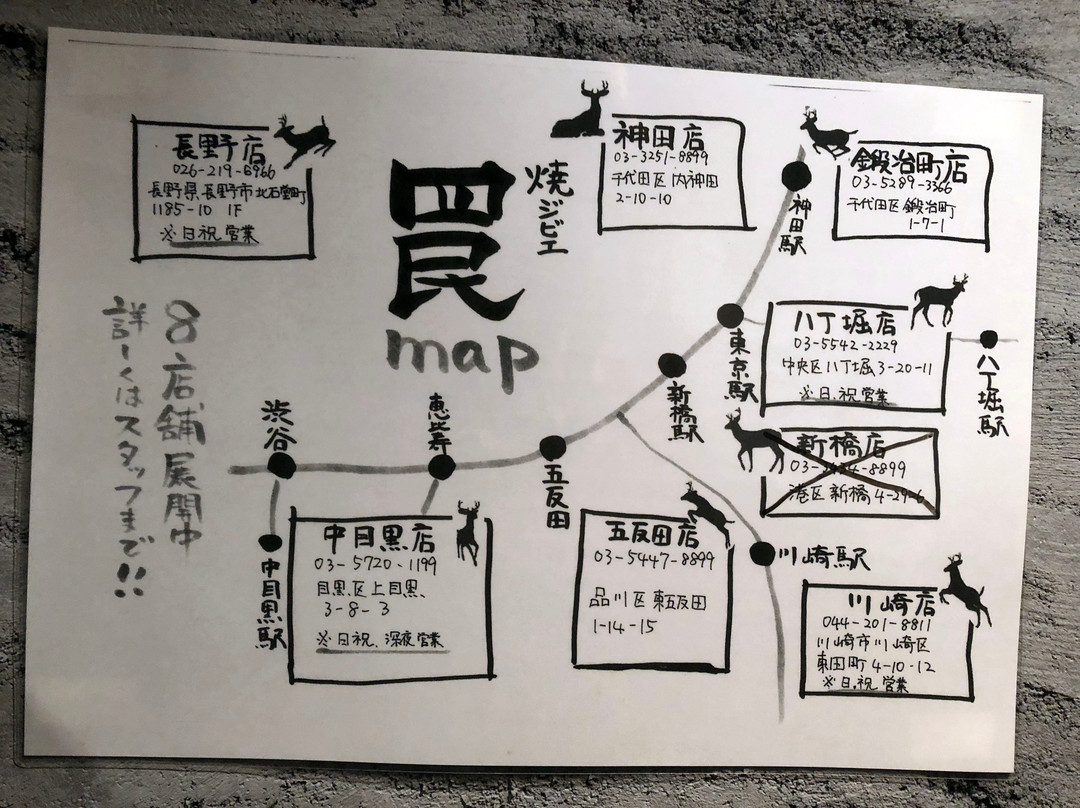 長野店
026-219-6966
長野県長野市北石堂町
1185-10 1F
※日祝営業
罠
焼ジビエ
map
神田店
03-3251-8899
千代田区内神田
2-10-10
鍛冶町店
03-5289-3366
千代田区鍛冶町
1-7-1
神田駅
八丁堀店
03-5542-2229
中央区八丁堀3-20-11
※日.祝営業
東京駅
八丁堀駅
新橋駅
新橋店
8899
港区新橋4-29-6
8店舗展開中
詳しくはスタッフまで!!
渋谷
恵比寿
五反田
中目黒駅
中目黒店
03-5720-1199
目黒区上目黒
3-8-3
※日祝、深夜営業
五反田店
03-5447-8899
品川区東五反田
1-14-15
川崎駅
川崎店
044-201-8811
川崎市川崎区
東田町4-10-12
※日.祝営業